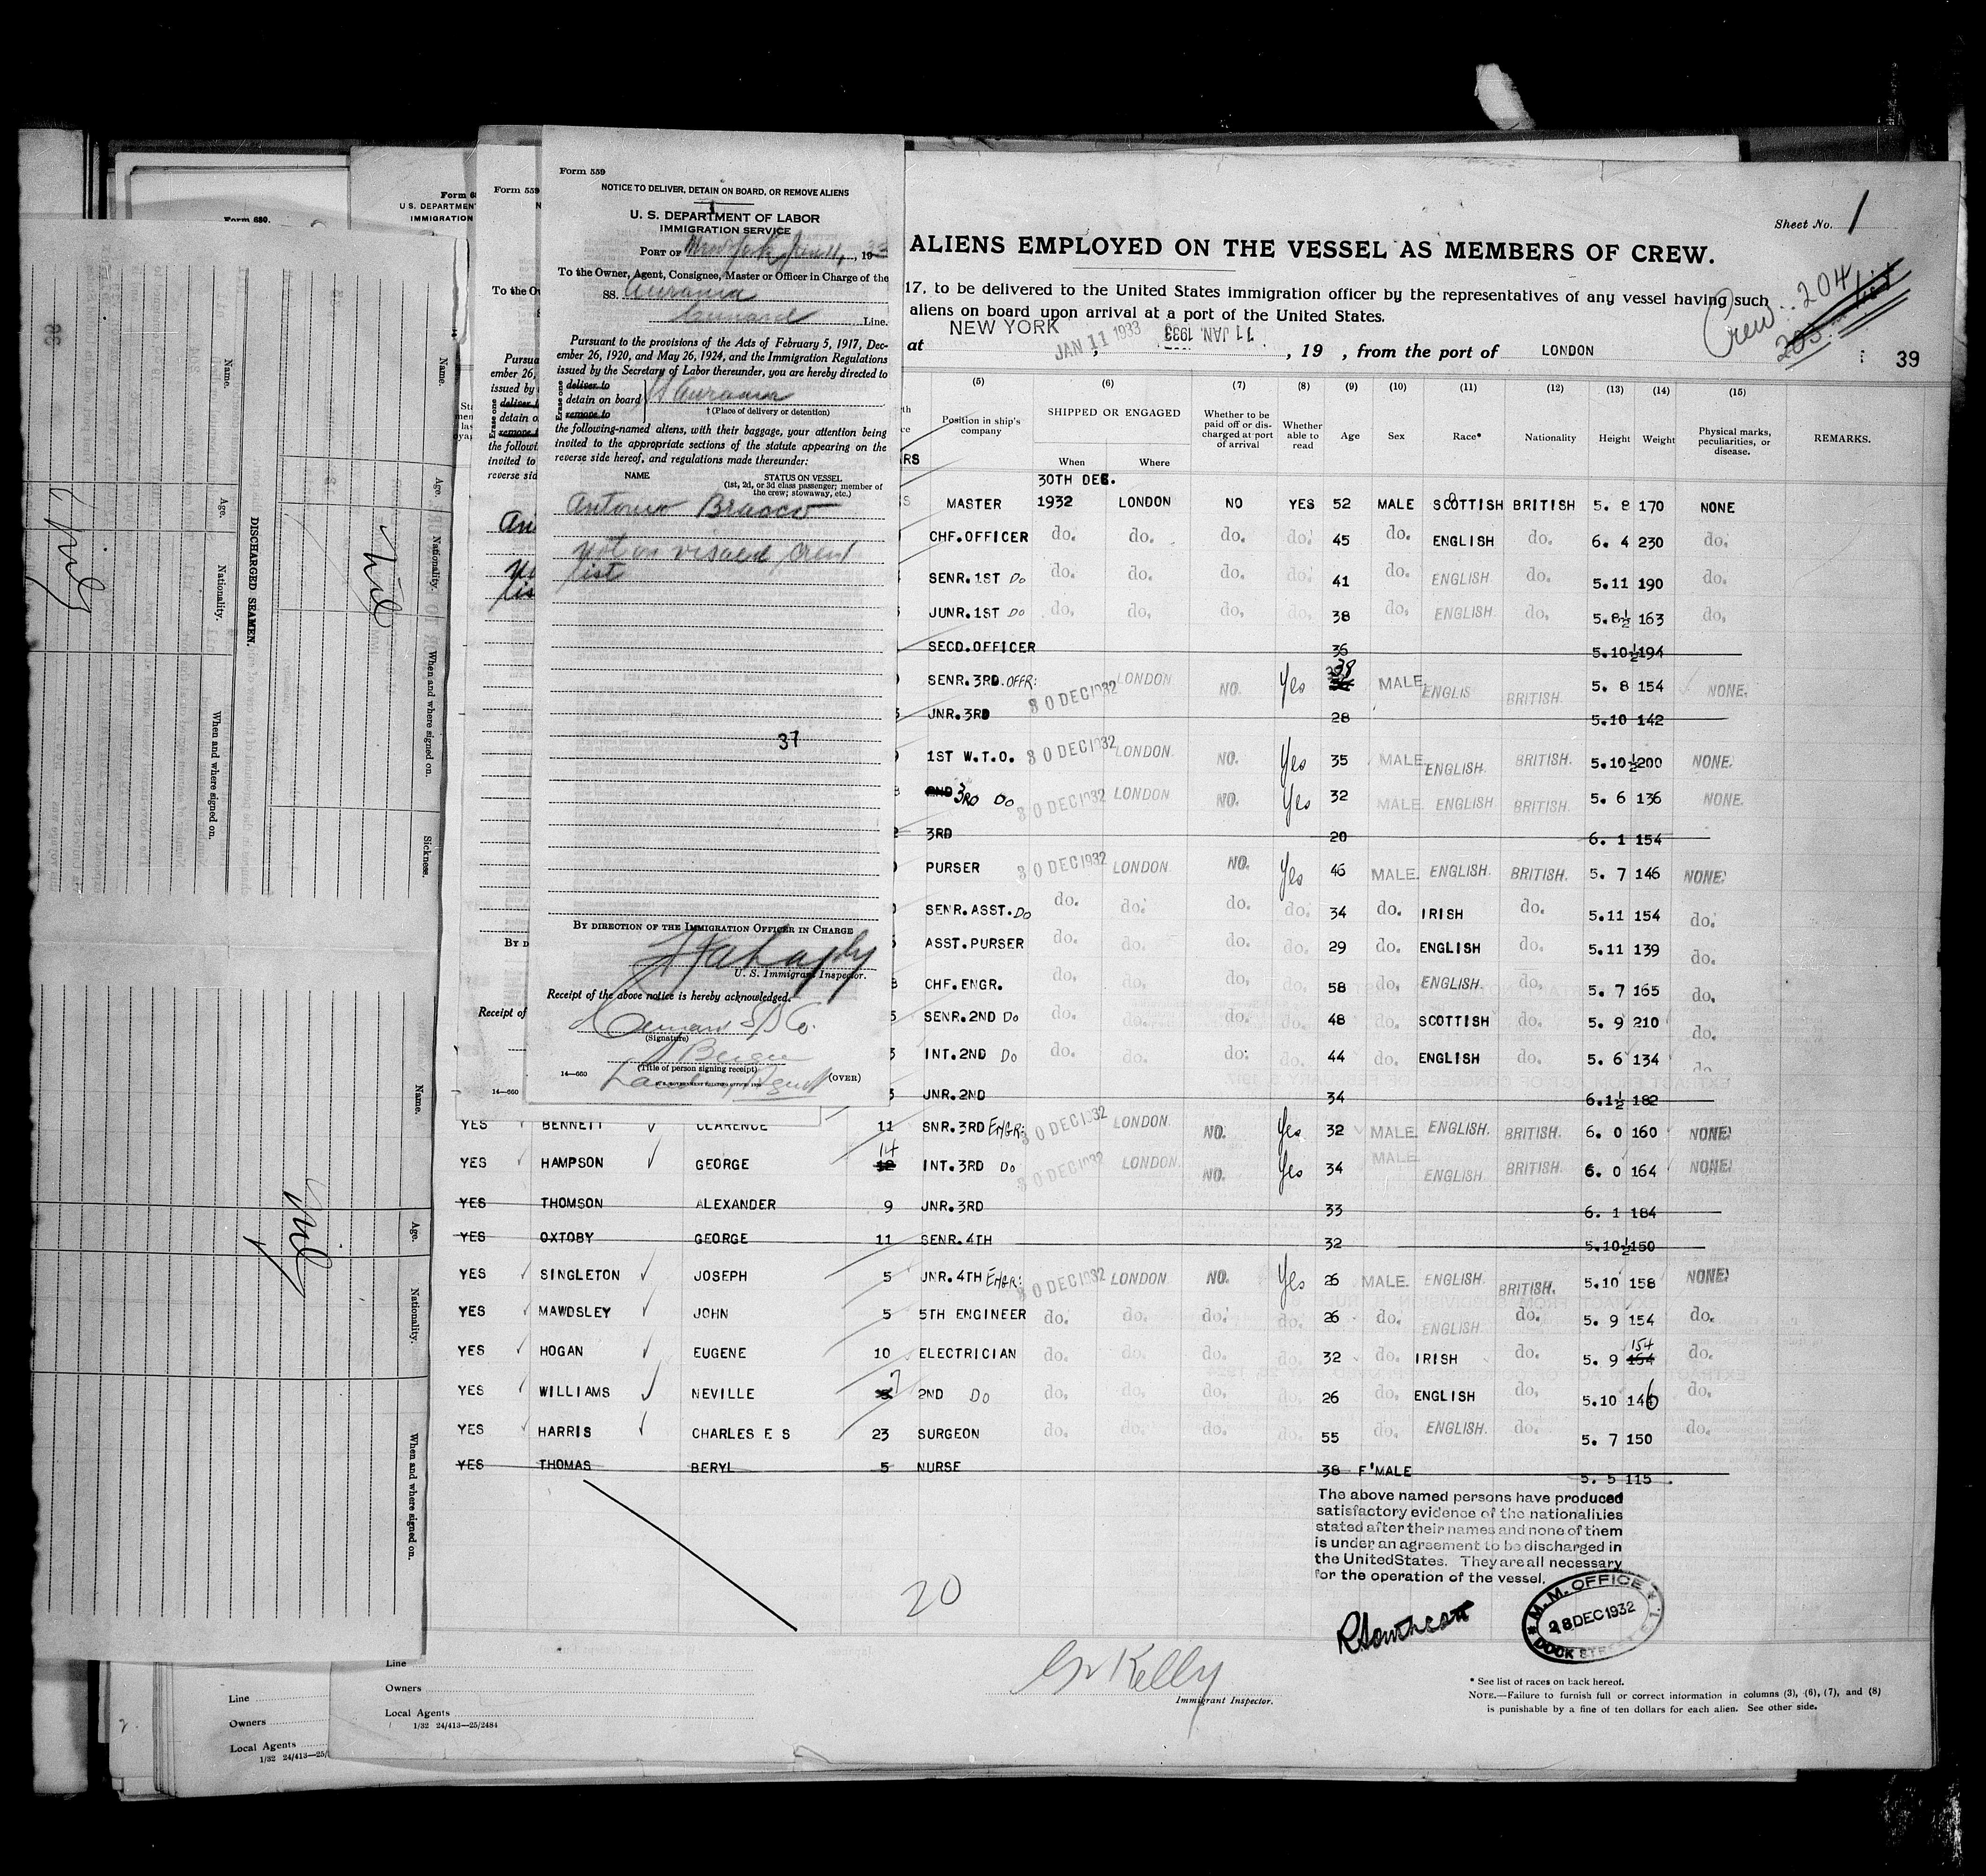 Form 680.
Form 559
Form 559
NOTICE TO DELIVER, DETAIN ON BOARD, OR REMOVE ALIENS
U. S. DEPARTMENT OF LABOR
IMMIGRATION SERVICE
PORT OF New York, Jan 11, 1933
To the Owner, Agent, Consignee, Master or Officer in Charge of the
SS. Aurania
Cunard Line.
Pursuant to the provisions of the Acts of February 5, 1917, Dec-
ember 26, 1920, and May 26, 1924, and the Immigration Regulations
issued by the Secretary of Labor thereunder, you are hereby directed to
Erase one
deliver to
detain on board
remove to
SS Aurania
† (Place of delivery or detention)
the following-named aliens, with their baggage, your attention being
invited to the appropriate sections of the statute appearing on the
reverse side hereof, and regulations made thereunder:
NAME STATUS ON VESSEL
(1st, 2d, or 3d class passenger; member of
the crew; stowaway, etc.)
Antonio Brasco
Not on visaed crew
list
37
BY DIRECTION OF THE IMMIGRATION OFFICER IN CHARGE
U. S. Immigrant Inspector.
Receipt of the above notice is hereby acknowledged.
Cunard SS Co.
(Signature)
(Title of person signing receipt)
Landing Agent
14—660 (OVER)
Sheet No. 1
ALIENS EMPLOYED ON THE VESSEL AS MEMBERS OF CREW.
17, to be delivered to the United States immigration officer by the representatives of any vessel having such
aliens on board upon arrival at a port of the United States.
Crew 204
205 list
at NEW YORK JAN 11 1933, 11 JAN. 1933, 19 , from the port of LONDON
39
(5) (6) (7) (8) (9) (10) (11) (12) (13) (14) (15)
Position in ship's company SHIPPED OR ENGAGED When Where Whether to be paid off or dis-charged at port of arrival Whether able to read Age Sex Race* Nationality Height Weight Physical marks, peculiarities, or disease. REMARKS.
30TH DEC.
MASTER 1932 LONDON NO YES 52 MALE SCOTTISH BRITISH 5. 8 170 NONE
CHF.OFFICER do. do. do. do. 45 do. ENGLISH do. 6. 4 230 do.
SENR.1ST Do do. do. do. do. 41 do. ENGLISH do. 5.11 190 do.
JUNR.1ST DO do. do. do. do. 38 do. ENGLISH. do. 5.8½ 163 do.
SECD.OFFICER 36 5.10½ 194
SENR.3RD.OFFR: 30 DEC 1932 LONDON NO. Yes 39 MALE ENGLIS BRITISH. 5. 8 154 NONE.
JNR.3RD 28 5.10 142
1ST W.T.O. 30 DEC 1932 LONDON. NO. Yes 35 MALE ENGLISH. BRITISH. 5.10½ 200 NONE.
2ND 3RD DO 30 DEC 1932 LONDON NO. Yes 32 MALE ENGLISH BRITISH. 5. 6 136 NONE.
3RD 20 6. 1 154
PURSER 30 DEC 1932 LONDON. NO. Yes 46 MALE. ENGLISH. BRITISH. 5. 7 146 NONE.
SENR.ASST.DO do. do. do. do. 34 do. IRISH do. 5.11 154 do.
ASST.PURSER do. do. do. do. 29 do. ENGLISH do. 5.11 139 do.
CHF.ENGR. do. do. do. do. 58 do. ENGLISH. do. 5. 7 165 do.
SENR.2ND Do do. do. do. do. 48 do. SCOTTISH do. 5. 9 210 do.
INT.2ND Do do. do. do. do. 44 do. ENGLISH do. 5. 6 134 do
JNR.2ND 34 6.1½ 182
YES BENNETT CLARENCE 11 SNR.3RD ENGR: 30 DEC 1932 LONDON. NO. Yes 32 MALE. ENGLISH. BRITISH. 6. 0 160 NONE.
YES HAMPSON GEORGE 14 INT.3RD Do 30 DEC 1932 LONDON. NO. Yes 34 MALE ENGLISH. BRITISH. 6. 0 164 NONE.
YES THOMSON ALEXANDER 9 JNR.3RD 33 6. 1 184
YES OXTOBY GEORGE 11 SENR.4TH 32 5.10½ 150
YES SINGLETON JOSEPH 5 JNR.4TH ENGR: 30 DEC 1932 LONDON. NO. Yes 26 MALE. ENGLISH. BRITISH. 5.10 158 NONE.
YES MAWDSLEY JOHN 5 5TH ENGINEER do. do. do. do. 26 do. ENGLISH do. 5. 9 154 do.
YES HOGAN EUGENE 10 ELECTRICIAN do. do. do. do. 32 do. IRISH do. 5. 9 154 do.
YES WILLIAMS NEVILLE 7 2ND DO do. do. do. do. 26 do. ENGLISH do. 5.10 146 do.
YES HARRIS CHARLES E S 23 SURGEON do. do. do. do. 55 do. ENGLISH. do. 5. 7 150 do.
YES THOMAS BERYL 5 NURSE 38 F'MALE 5. 5 115
The above named persons have produced
satisfactory evidence of the nationalities
stated after their names and none of them
is under an agreement to be discharged in
the United States. They are all necessary
for the operation of the vessel.
M. M. OFFICE
28 DEC 1932
DOCK STREET E.1.
20
Kelly
Immigrant Inspector.
* See list of races on back hereof.
NOTE.—Failure to furnish full or correct information in columns (3), (6), (7), and (8)
is punishable by a fine of ten dollars for each alien. See other side.
Line
Owners
Local Agents
1/32 24/413—25/2484
Line
Owners
Local Agents
1/32 24/413—25/
Name. Age. Nationality. When and where signed on. Sickness.
Nil
DISCHARGED SEAMEN.
Name. Age. Nationality. When and where signed on.
Nil
Name. Age. Nationality. When and where signed on.
Nil